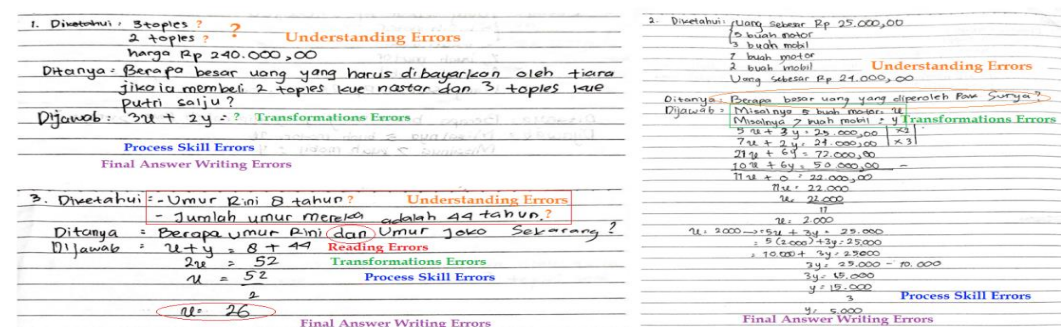 1. Diketahui : 3 toples ?
2 toples ? ?
Understanding Errors
harga Rp 240.000,00
Ditanya : Berapa besar uang yang harus dibayarkan oleh tiara
jika ia membeli 2 toples kue nastar dan 3 toples kue
putri salju ?
Dijawab : 3x + 2y = ? Transformations Errors
Process Skill Errors
Final Answer Writing Errors
3. Diketahui : - Umur Rini 8 tahun ? Understanding Errors
- Jumlah umur mereka adalah 44 tahun. ?
Ditanya : Berapa umur Rini dan Umur Joko Sekarang ?
Dijawab : x + y = 8 + 44 Reading Errors
2x = 52 Transformations Errors
x = 52 Process Skill Errors
2
x = 26
Final Answer Writing Errors
2. Diketahui : Uang sebesar Rp 25.000,00
5 buah motor
3 buah mobil
7 buah motor
2 buah mobil
Understanding Errors
Uang sebesar Rp 24.000,00
Ditanya : Berapa besar uang yang diperoleh Pak Surya ?
Dijawab : Misalnya 5 buah motor : x
Misalnya 7 buah mobil : y Transformations Errors
5x + 3y = 25.000,00 | x2 |
7x + 2y = 24.000,00 | x3 |
21x + 6y = 72.000,00
10x + 6y = 50.000,00 -
11x + 0 = 22.000,00
11x = 22.000
x = 22.000
11
x = 2.000
x = 2000 → 5x + 3y = 25.000
= 5(2.000) + 3y = 25.000
= 10.000 + 3y = 25000
3y = 25.000 - 10.000
3y = 15.000
y = 15.000
3
Process Skill Errors
y = 5.000
Final Answer Writing Errors